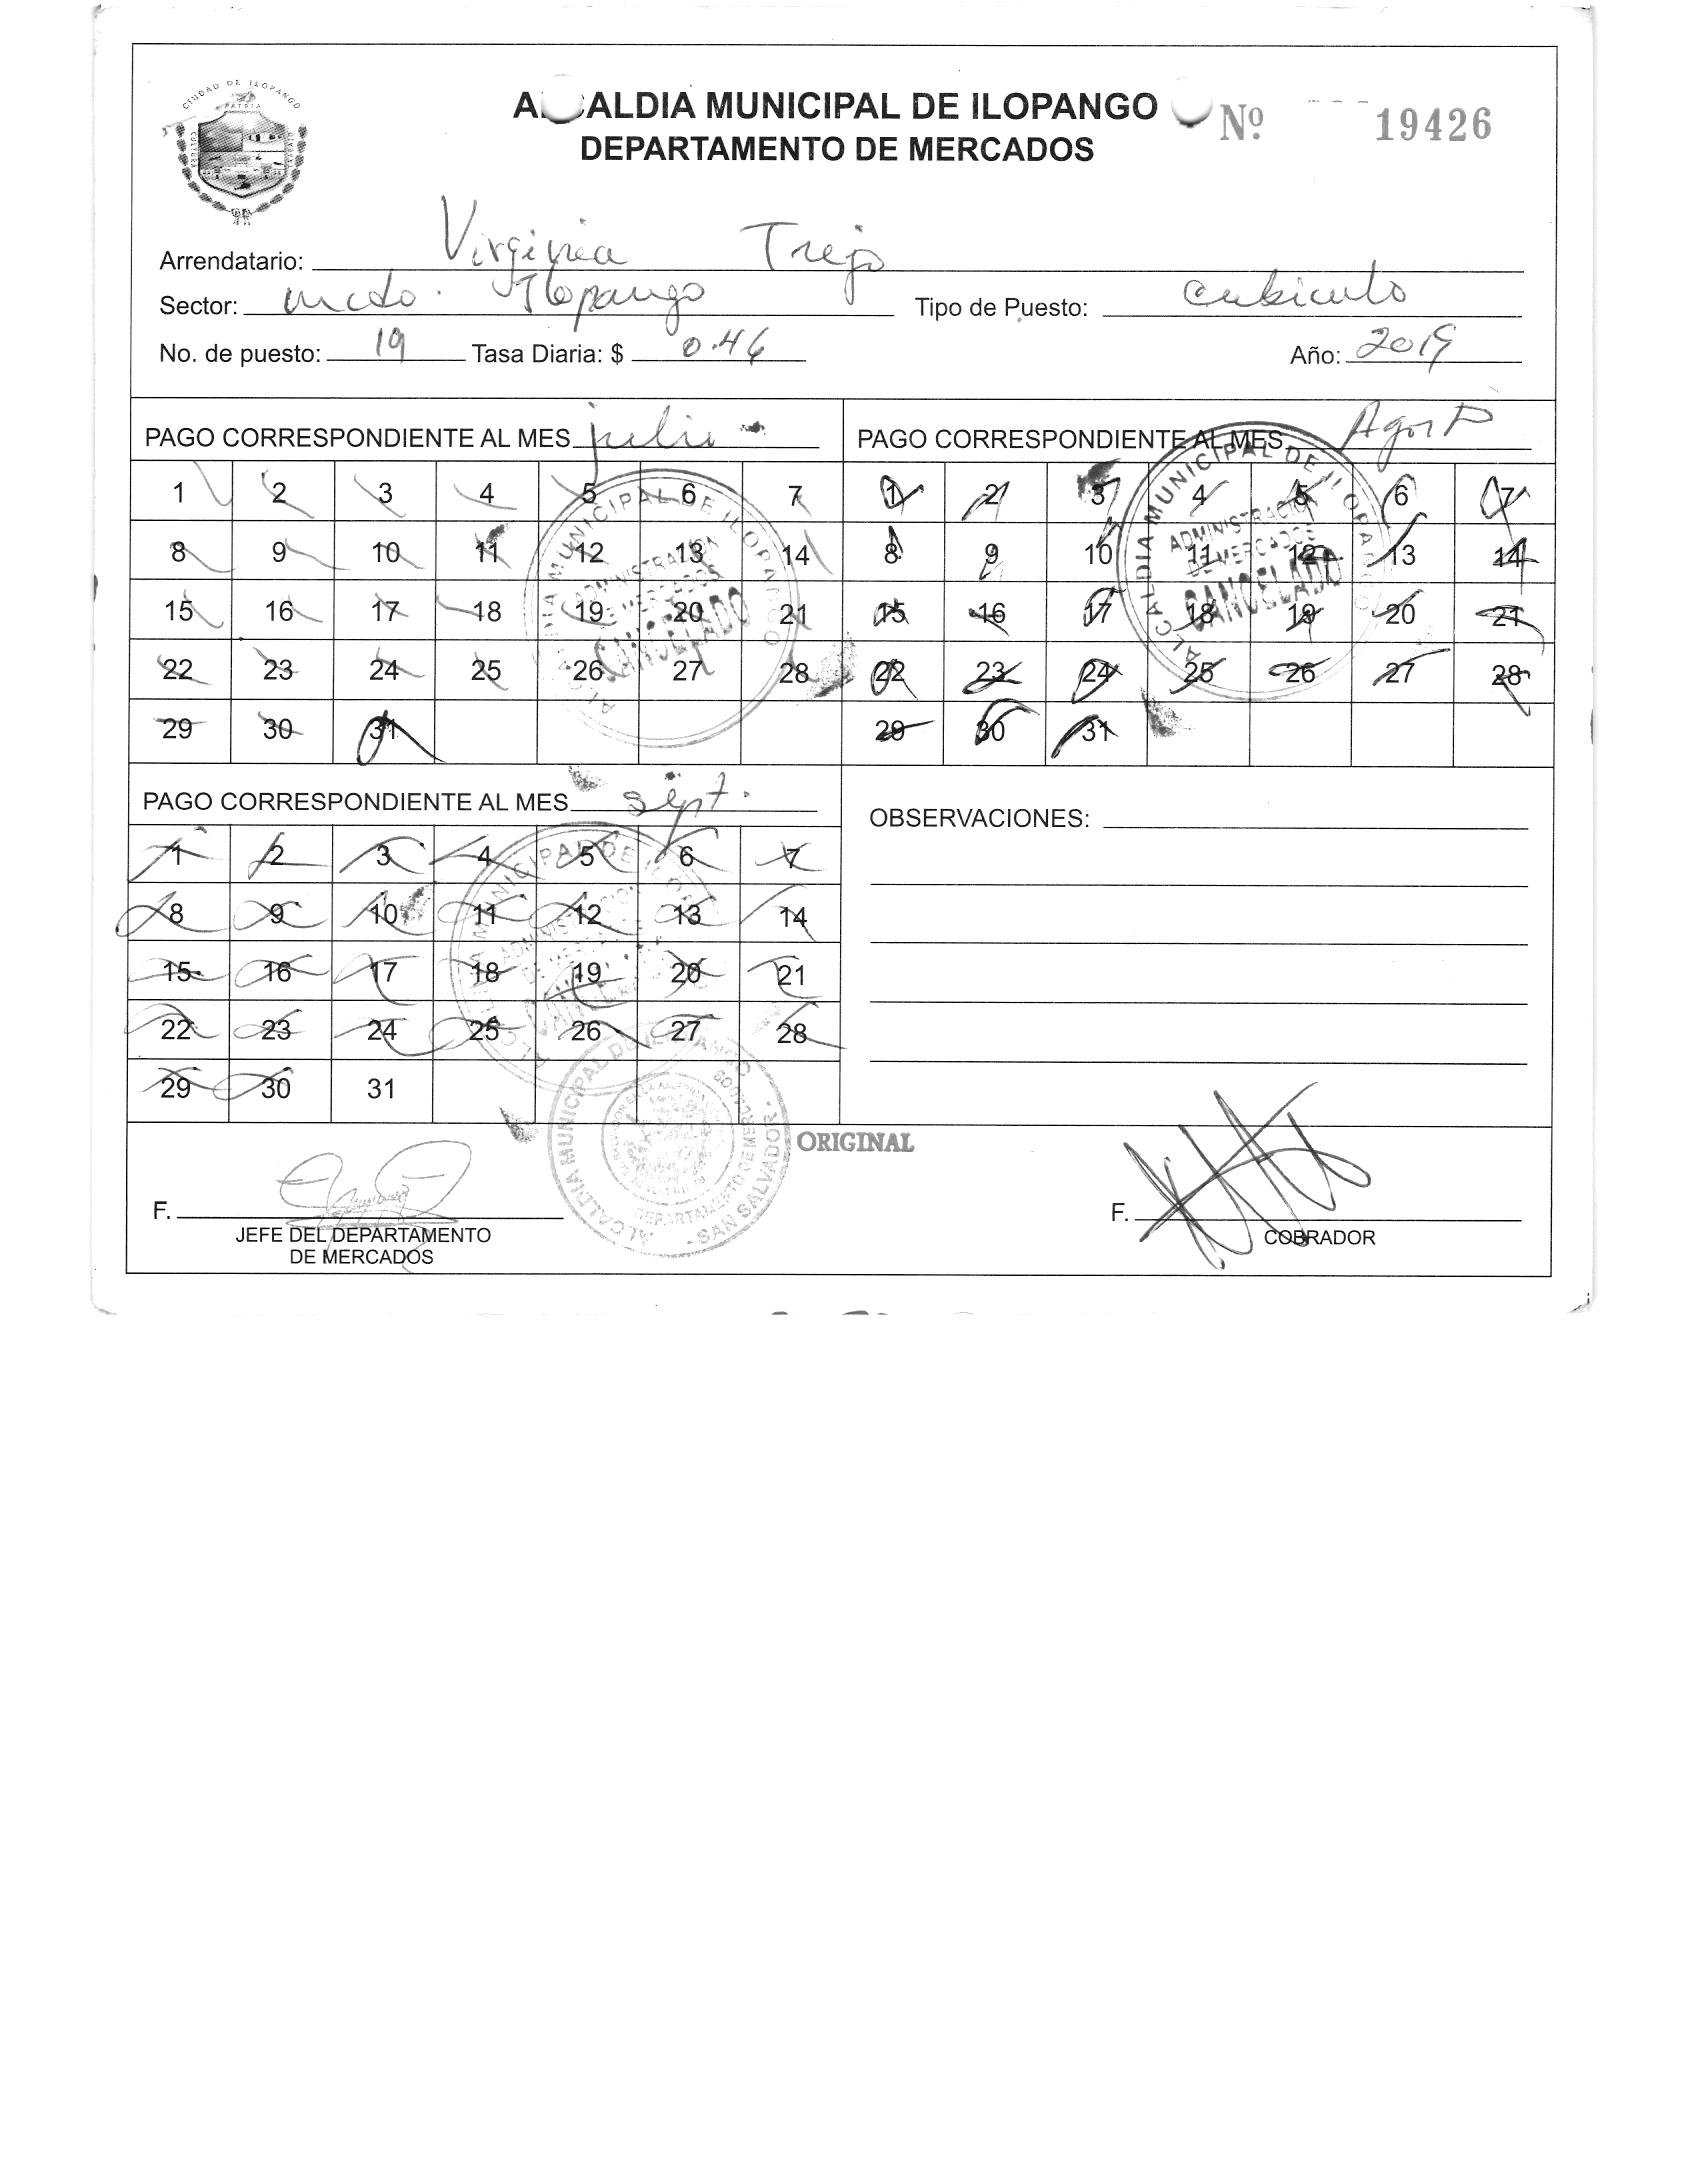 CIUDAD DE ILOPANGO
PATRIA
CULTURA
TRABAJO
ALCALDIA MUNICIPAL DE ILOPANGO
DEPARTAMENTO DE MERCADOS
Nº 19426
Arrendatario: Virginia Trejo
Sector: mcdo. Ilopango Tipo de Puesto: cubiculo
No. de puesto: 19 Tasa Diaria: $ 0.46 Año: 2019
PAGO CORRESPONDIENTE AL MES julio
1 2 3 4 5 6 7
8 9 10 11 12 13 14
15 16 17 18 19 20 21
22 23 24 25 26 27 28
29 30 31
ALCALDIA MUNICIPAL DE ILOPANGO
ADMINISTRACION
DE MERCADOS
CANCELADO
PAGO CORRESPONDIENTE AL MES Agosto
1 2 3 4 5 6 7
8 9 10 11 12 13 14
15 16 17 18 19 20 21
22 23 24 25 26 27 28
29 30 31
ALCALDIA MUNICIPAL DE ILOPANGO
ADMINISTRACION
DE MERCADOS
CANCELADO
PAGO CORRESPONDIENTE AL MES sept.
1 2 3 4 5 6 7
8 9 10 11 12 13 14
15 16 17 18 19 20 21
22 23 24 25 26 27 28
29 30 31
ALCALDIA MUNICIPAL DE ILOPANGO
ADMINISTRACION
DE MERCADOS
CANCELADO
OBSERVACIONES:
ALCALDIA MUNICIPAL DE ILOPANGO
DEPARTAMENTO DE MERCADOS
- SAN SALVADOR -
ORIGINAL
F.
JEFE DEL DEPARTAMENTO
DE MERCADOS
F.
COBRADOR